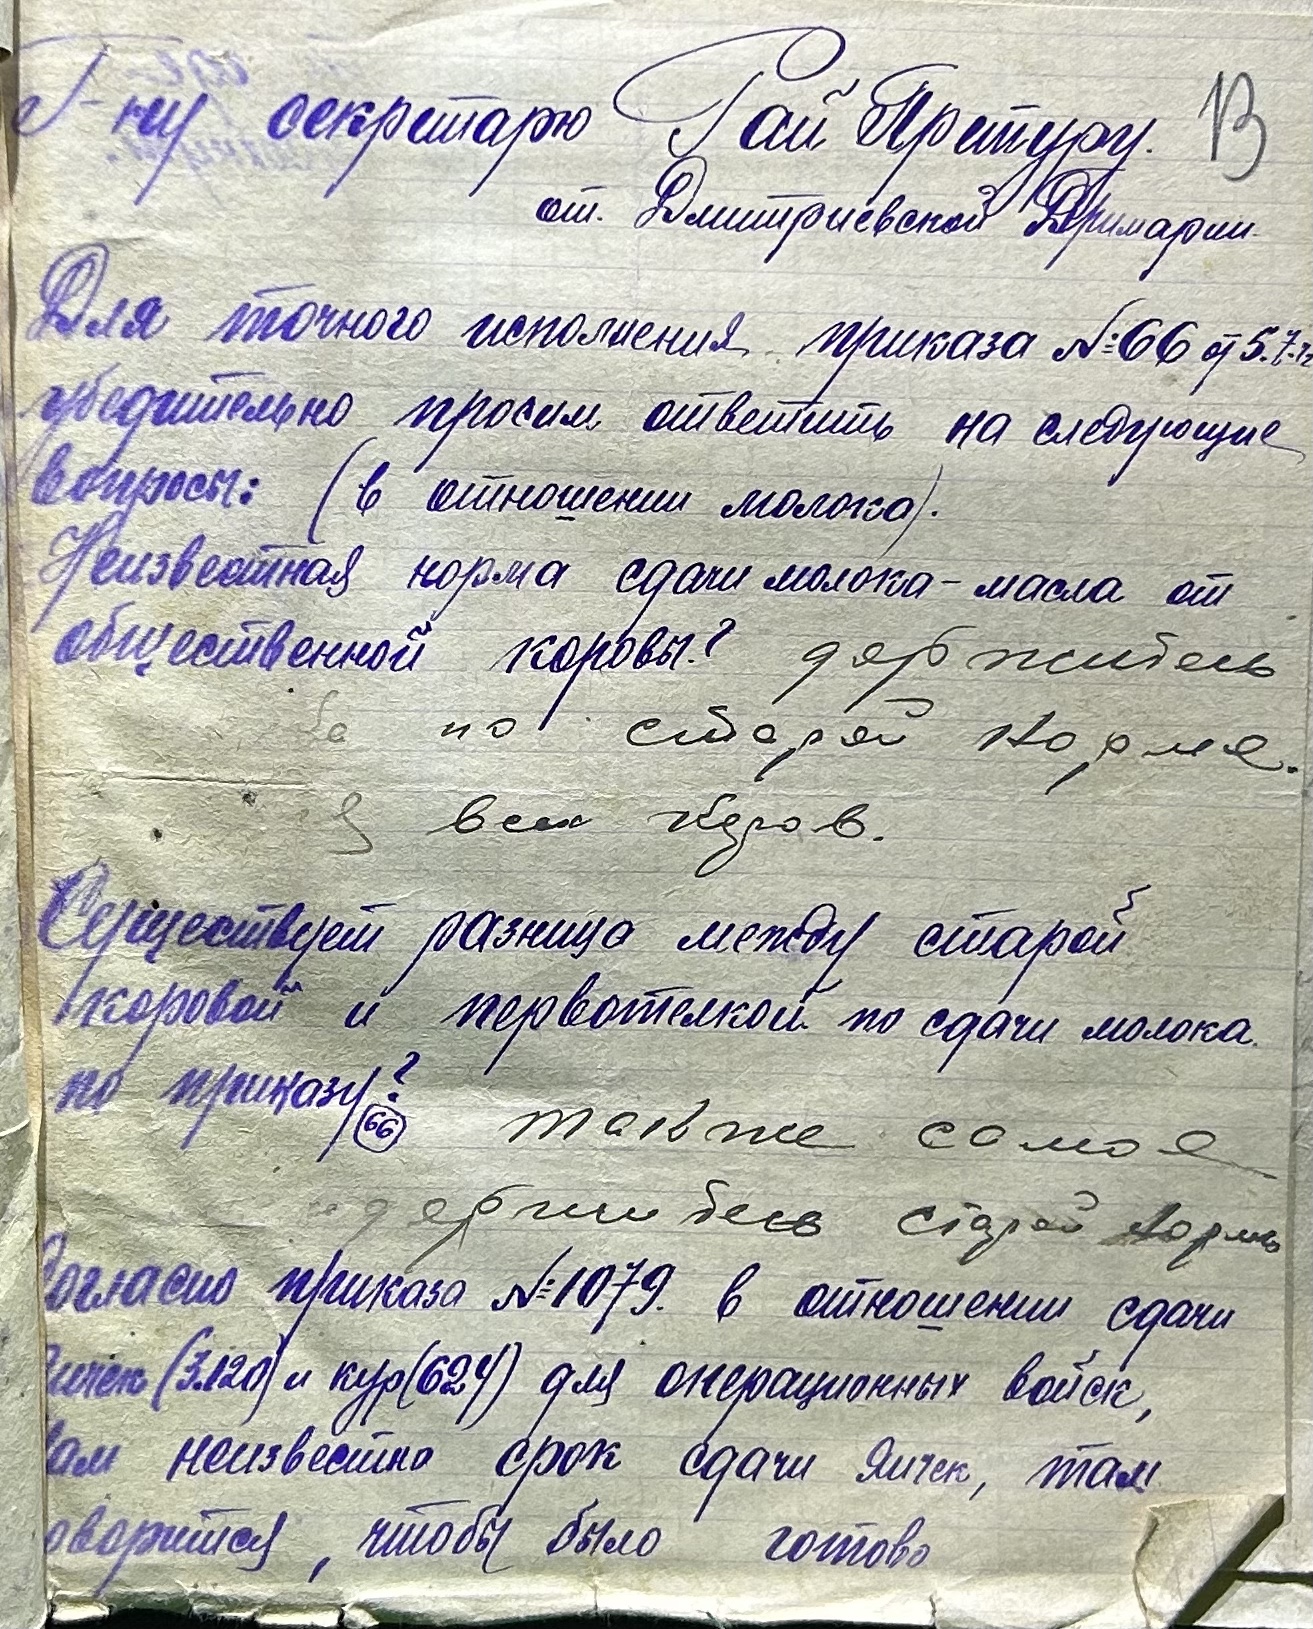 Г-ну секретарю Рай Претуру. 13
от. Дмитриевской Примарии
Для точного исполнения приказа №66 от 5.7.
убедительно просим ответить на следующие
вопросы: (в отношении молока).
Неизвестная норма сдачи молока-масла от
общественной коровы? держитесь
по старой норме.
всех
Существует разница между старой
коровой и первотелкой по сдачи молока
по приказу? 66 также самое
старой нормы
Согласно приказа №1079. в отношении сдачи
яичек (3.120) и кур (624) для операционных войск,
Нам неизвестно срок сдачи яичек, там
говорится, чтобы было готово